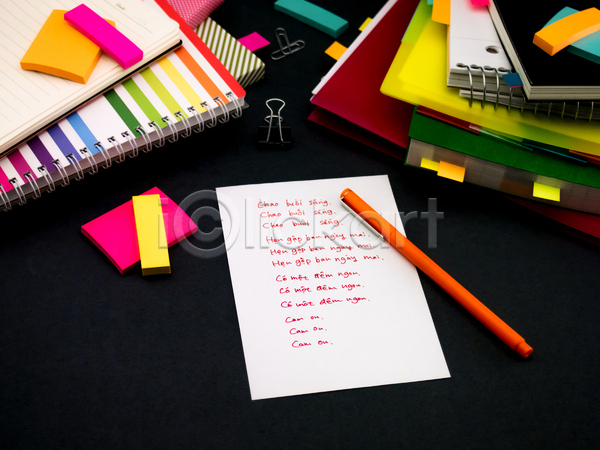 Chao buổi sáng.
Chao buổi sáng.
Chao buổi sáng.
Hẹn gặp bạn ngày mai.
Hẹn gặp bạn ngày mai.
Hẹn gặp bạn ngày mai.
Có một đêm ngon.
Có một đêm ngon.
Có một đêm ngon.
Cam on.
Cam on.
Cam on.
iclickart